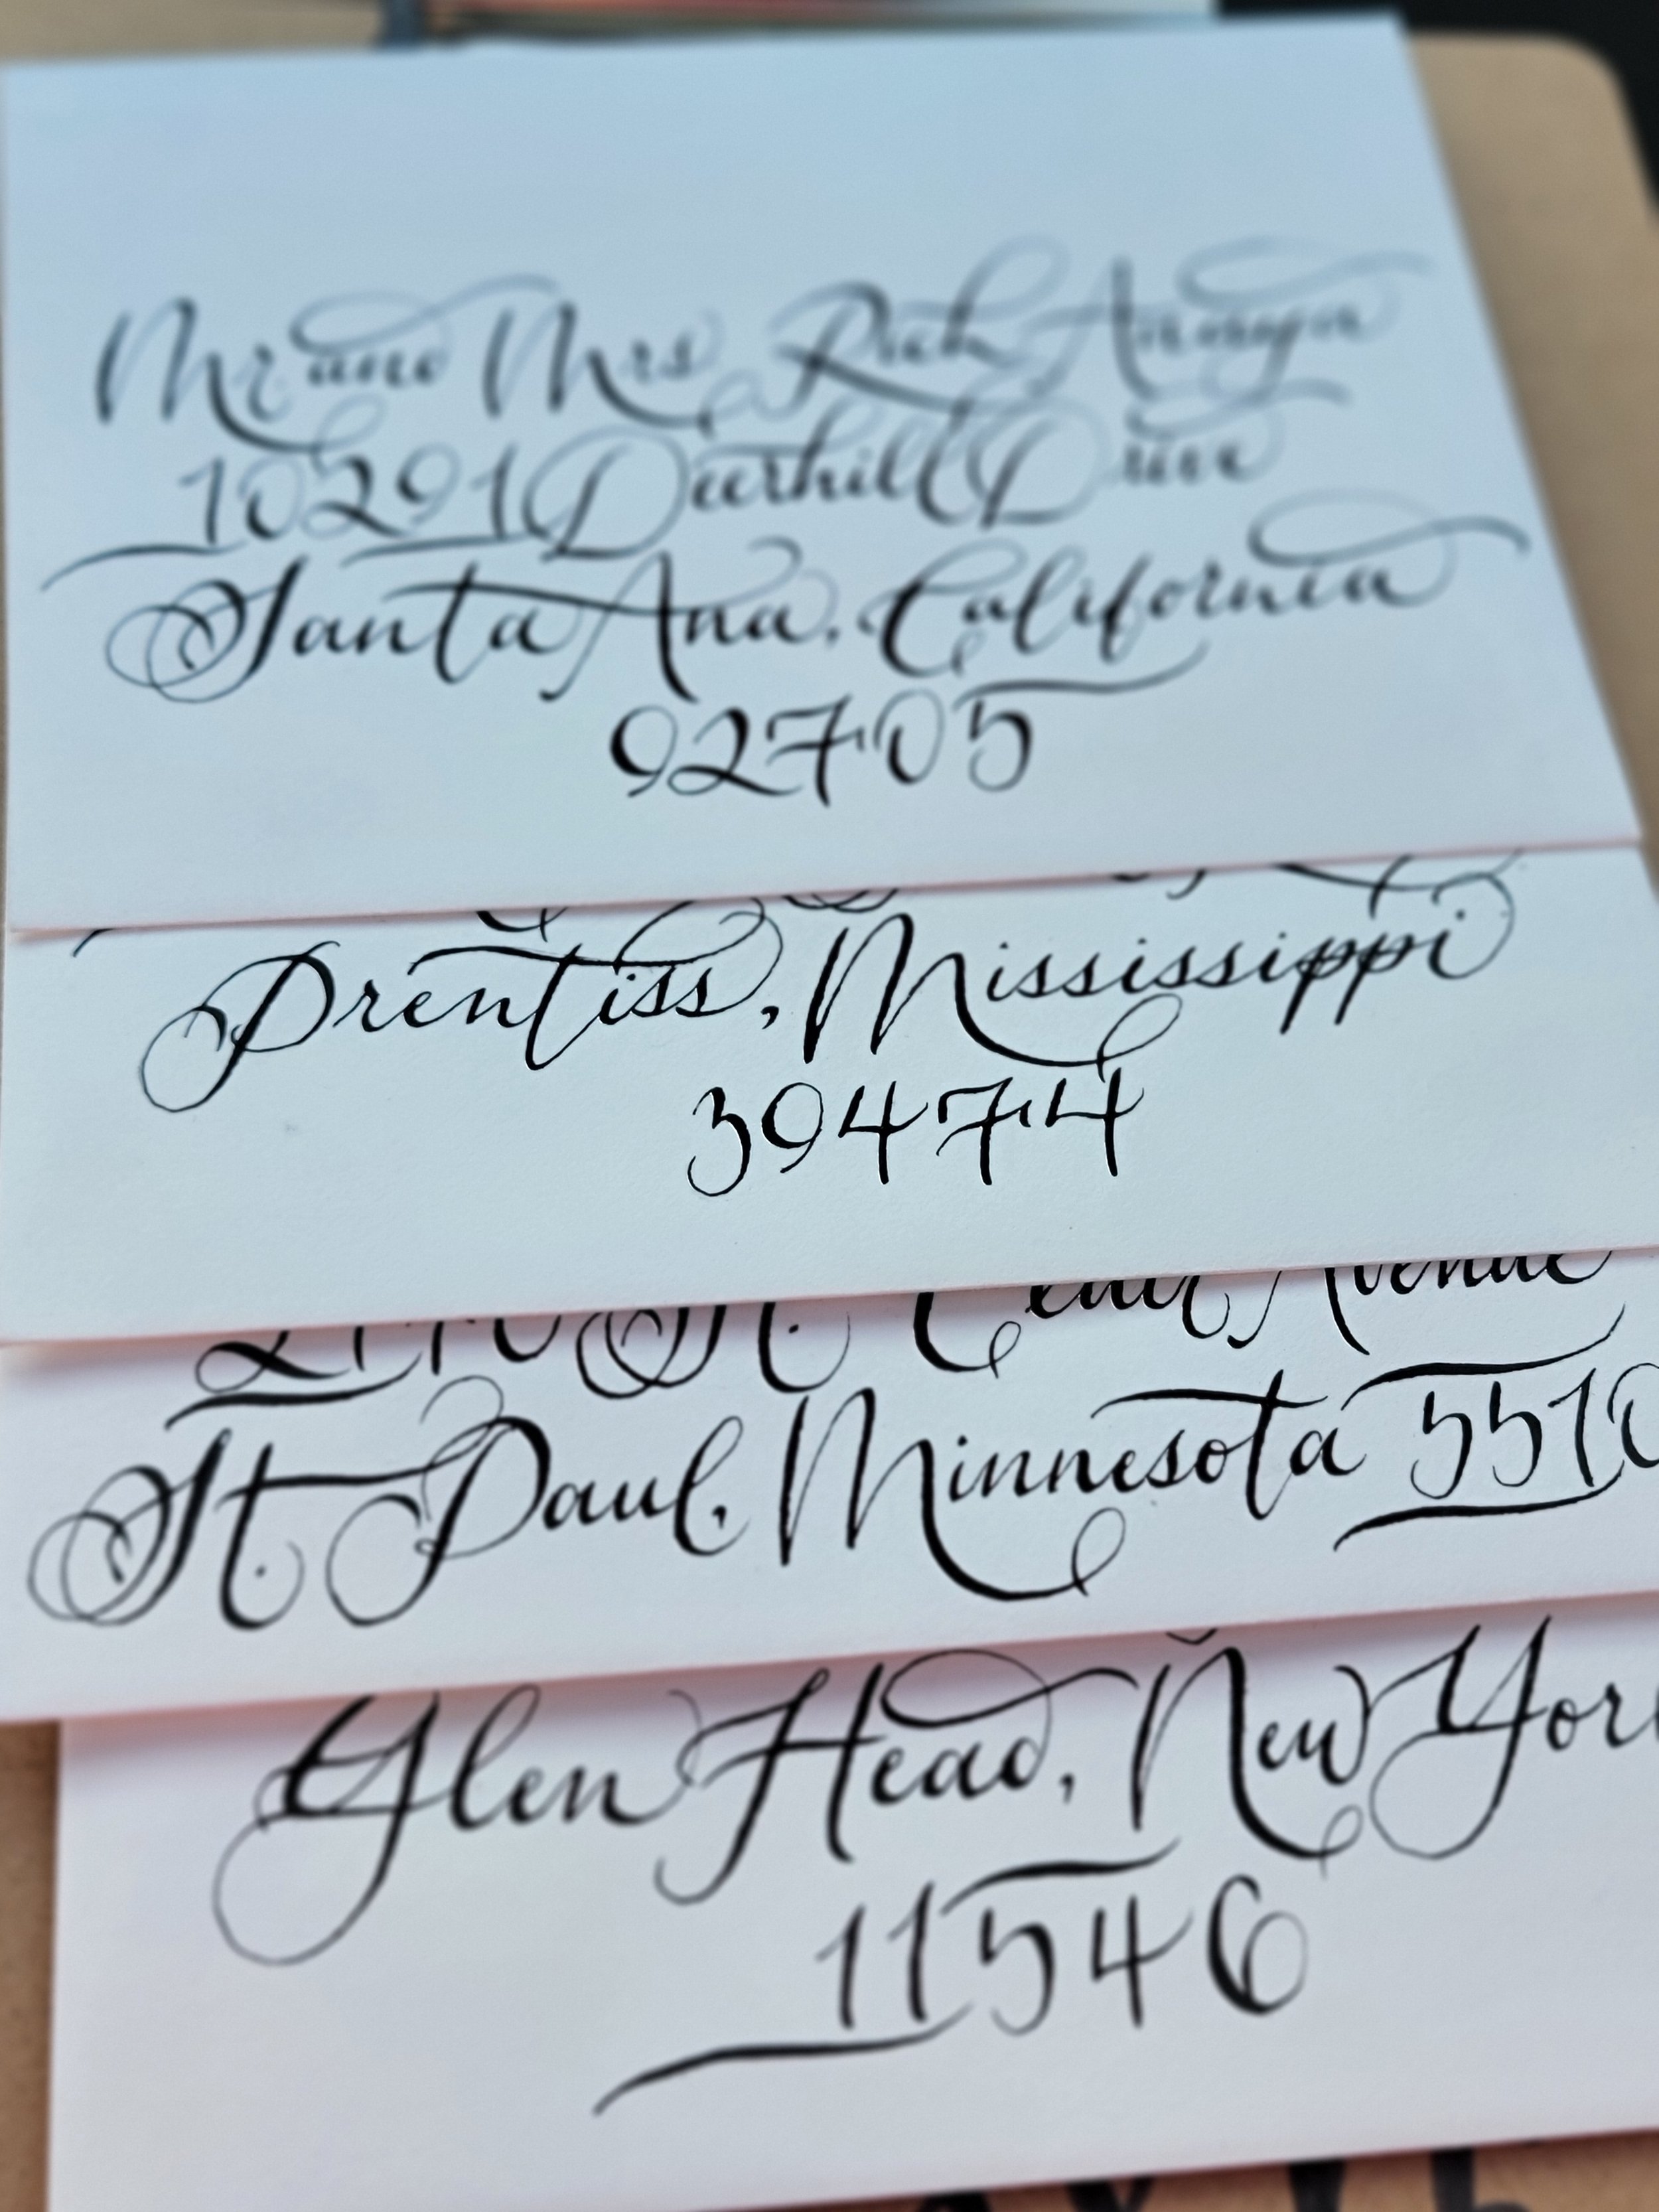 Mr and Mrs Rich
10291 Deerhill Drive
Santa Ana, California
92705
Prentiss, Mississippi
39474
St. Clair Avenue
St. Paul, Minnesota 5510
Glen Head, New York
11546